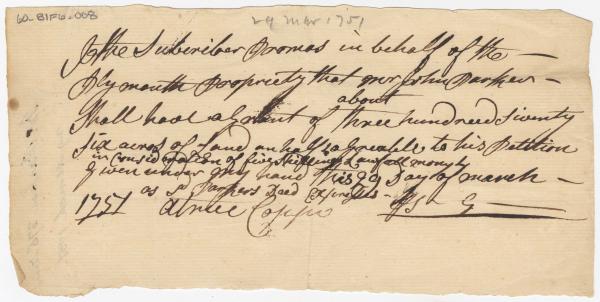 60-81F6-008
29 Mar 1751
I the Subscriber Promas in behalf of the
Plymouth Propriety that mr John Parker
about
Shall have a Grant of three hundreed Seventy
Six acres of Land an half agreable to his Petition
in Consideration of five Shillings Lawfull money
Given under my hand this 29 Day of march
as Parkers Deed Expresses
1751 a true Coppe